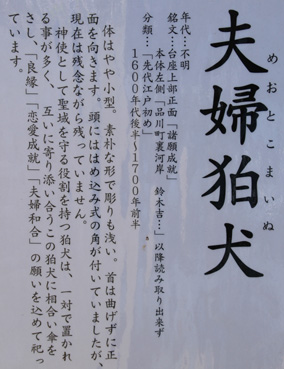 めおとこまいぬ
夫婦狛犬
年代…不明
銘文…台座上部正面「諸願成就」
本体左側「品川町裏河岸 鈴木吉…」以降読み取り出来ず
分類…「先代江戸初め」
1600年代後半〜1700年前半
体はやや小型。素朴な形で彫りも浅い。首は曲げずに正
面を向きます。頭にははめ込み式の角が付いていましたが、
現在は残念ながら残っていません。
神使として聖域を守る役割を持つ狛犬は、一対で置かれ
る事が多く、互いに寄り添い合うこの狛犬に相合い傘を
さし、「良縁」「恋愛成就」「夫婦和合」の願いを込めて祀っ
ています。